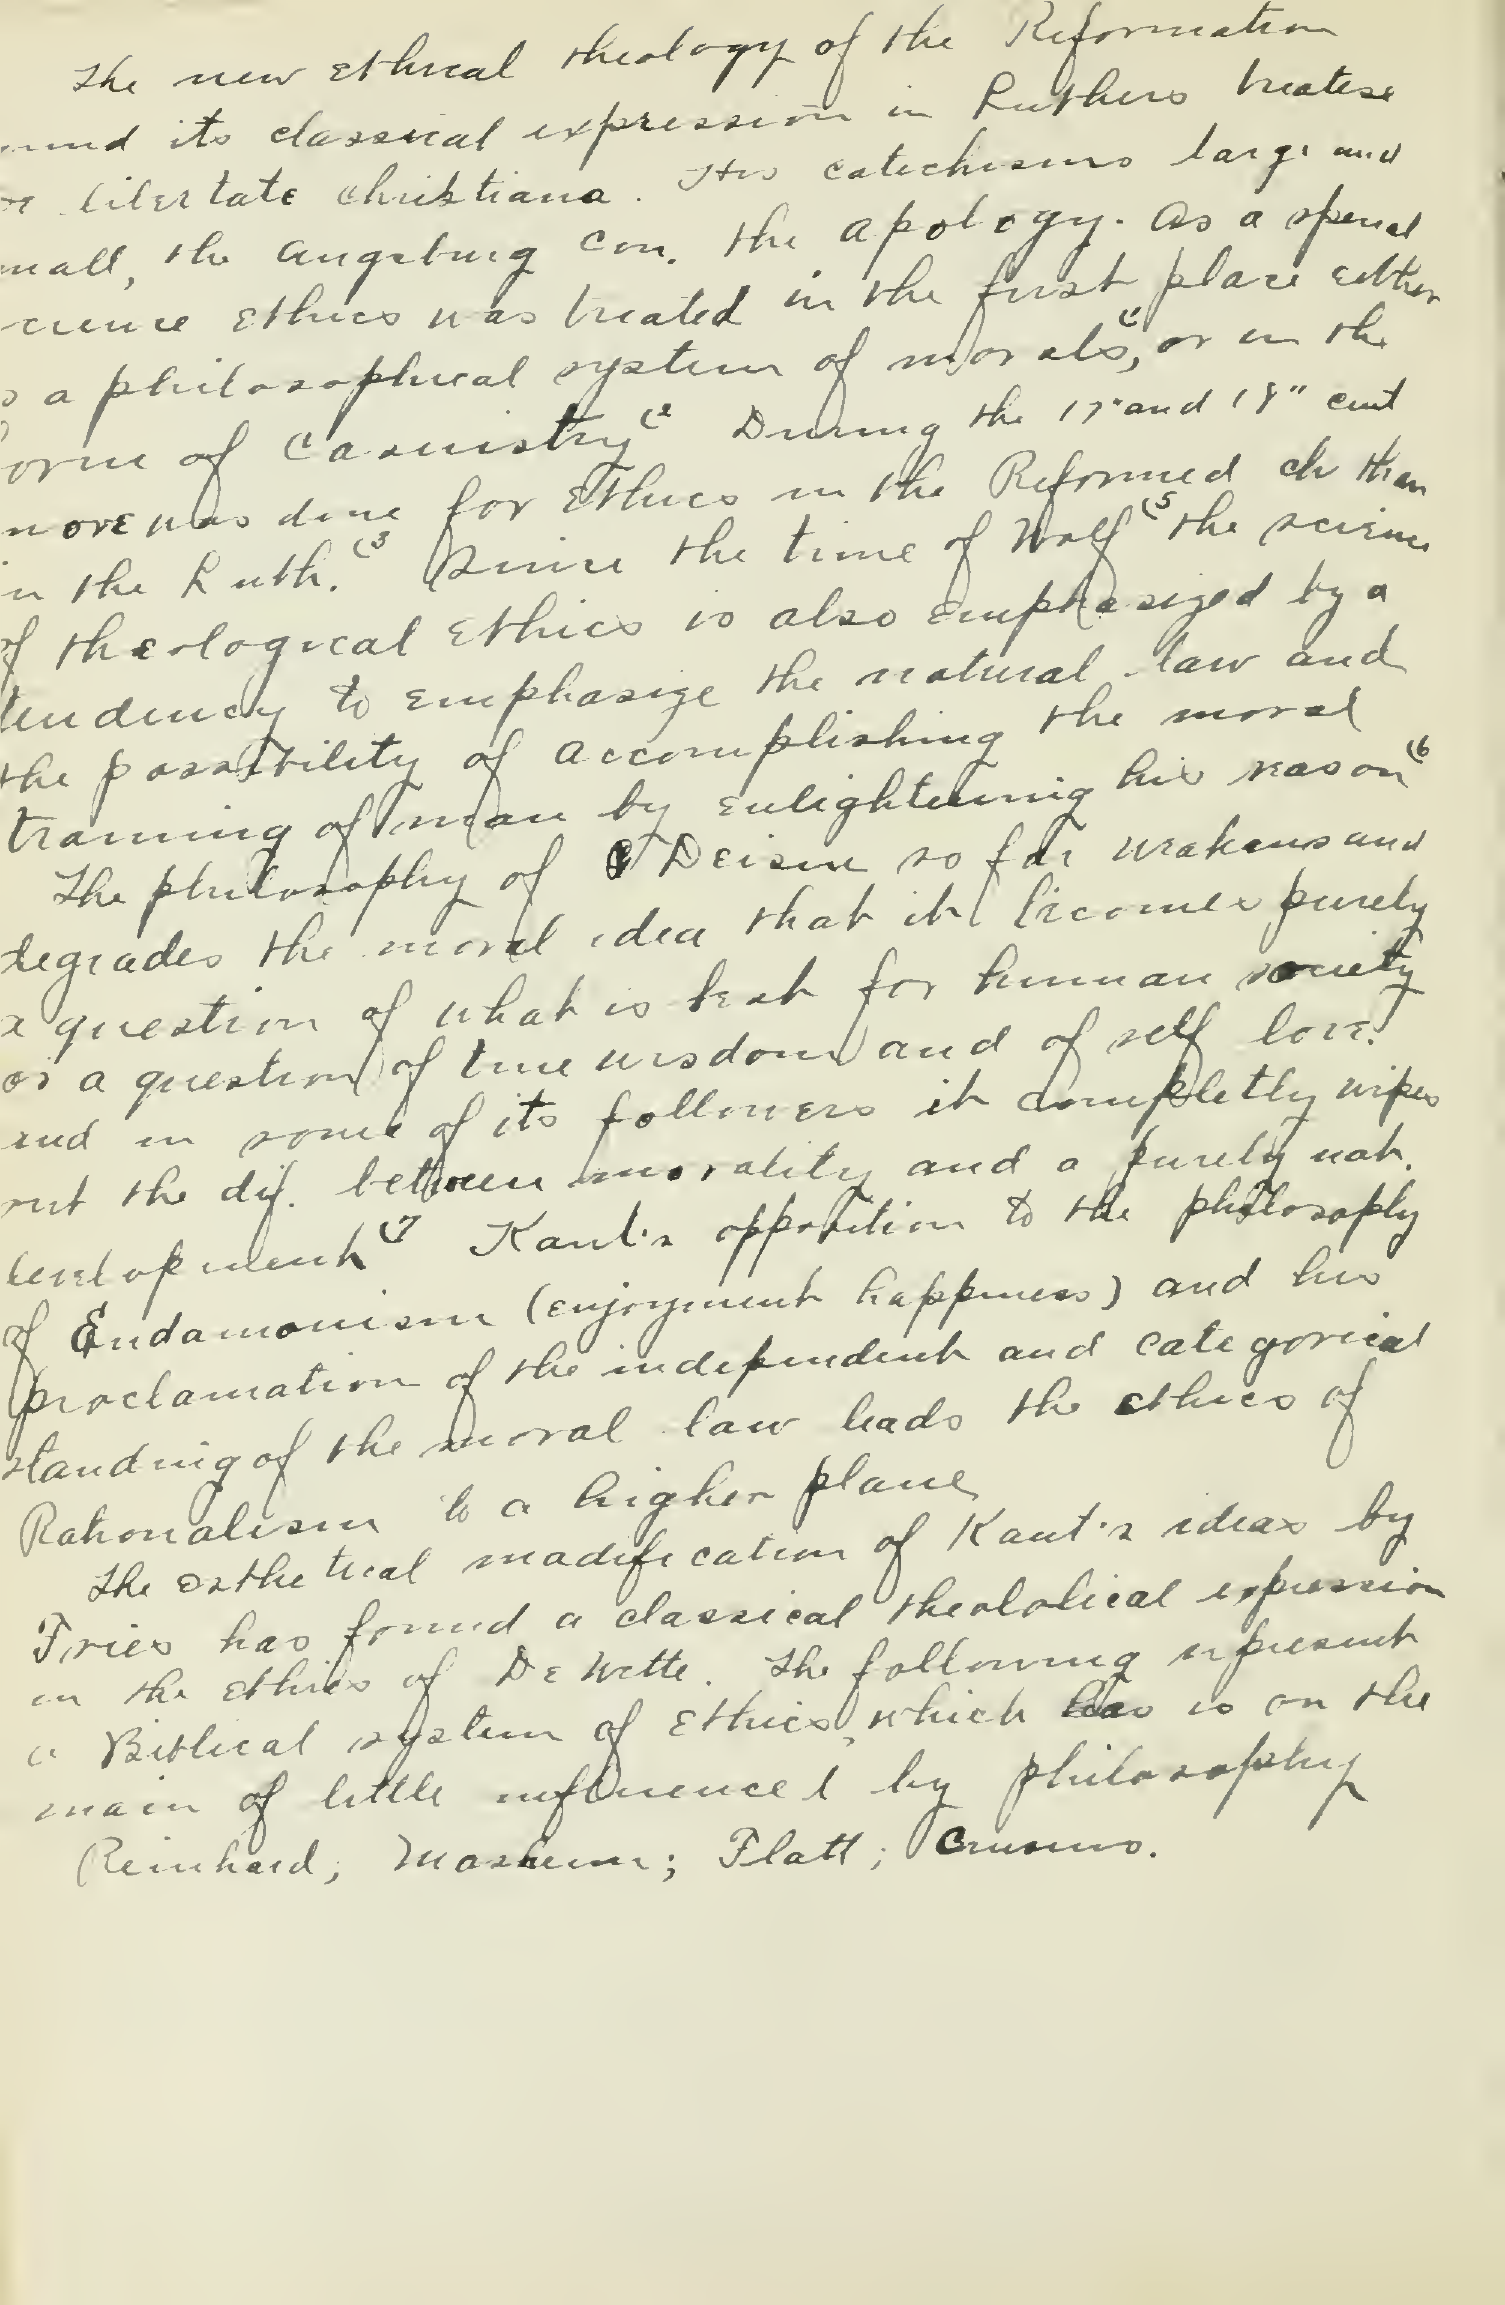 The new Ethical theology of the Reformation
ound its classical expression in Luthers treatese
de libertate christiana. His catechisms large and
mall, the Augsburg Con. the apology. As a special
cience Ethics was treated in the first place either
s a philosophical system of morals(1, or in the
form of Casuistry(2 During the 17" and 18" cent
more was done for Ethics in the Reformed ch than
in the Luth.(3 Since the time of Wolf(5 the science
of theological Ethics is also emphasized by a
tendency to emphasize the natural law and
the possibility of accomplishing the moral
training of man by enlightening his reason(6
The philosophy of Deism so far weakens and
degrades the moral idea that it becomes purely
a question of what is best for human society
or a question of true wisdom and of self love.
and in some of its followers it completly wipes
out the dif. between morality and a purely nat.
development(7 Kant's opposition to the philosophy
of Eudamonism (enjoyment happiness) and his
proclamation of the independent and categorical
standing of the moral law leads the ethics of
Rationalism to a higher plane
The esthetical modification of Kant's ideas by
Fries has found a classical theololical expression
in the ethics of De Wette. The following represent
a Biblical system of Ethics, which has is on the
main of little influenced by philosophy
Reinhard; Mosheim; Flatt; Crusius.